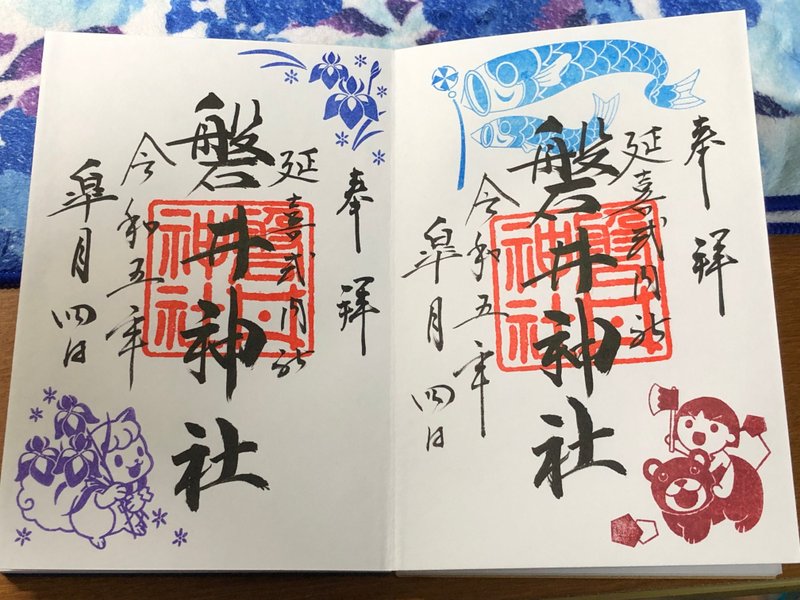 奉拝
延喜式内社
磐井神社
磐井神社
令和五年
皐月四日
奉拝
延喜式内社
磐井神社
磐井神社
令和五年
皐月四日